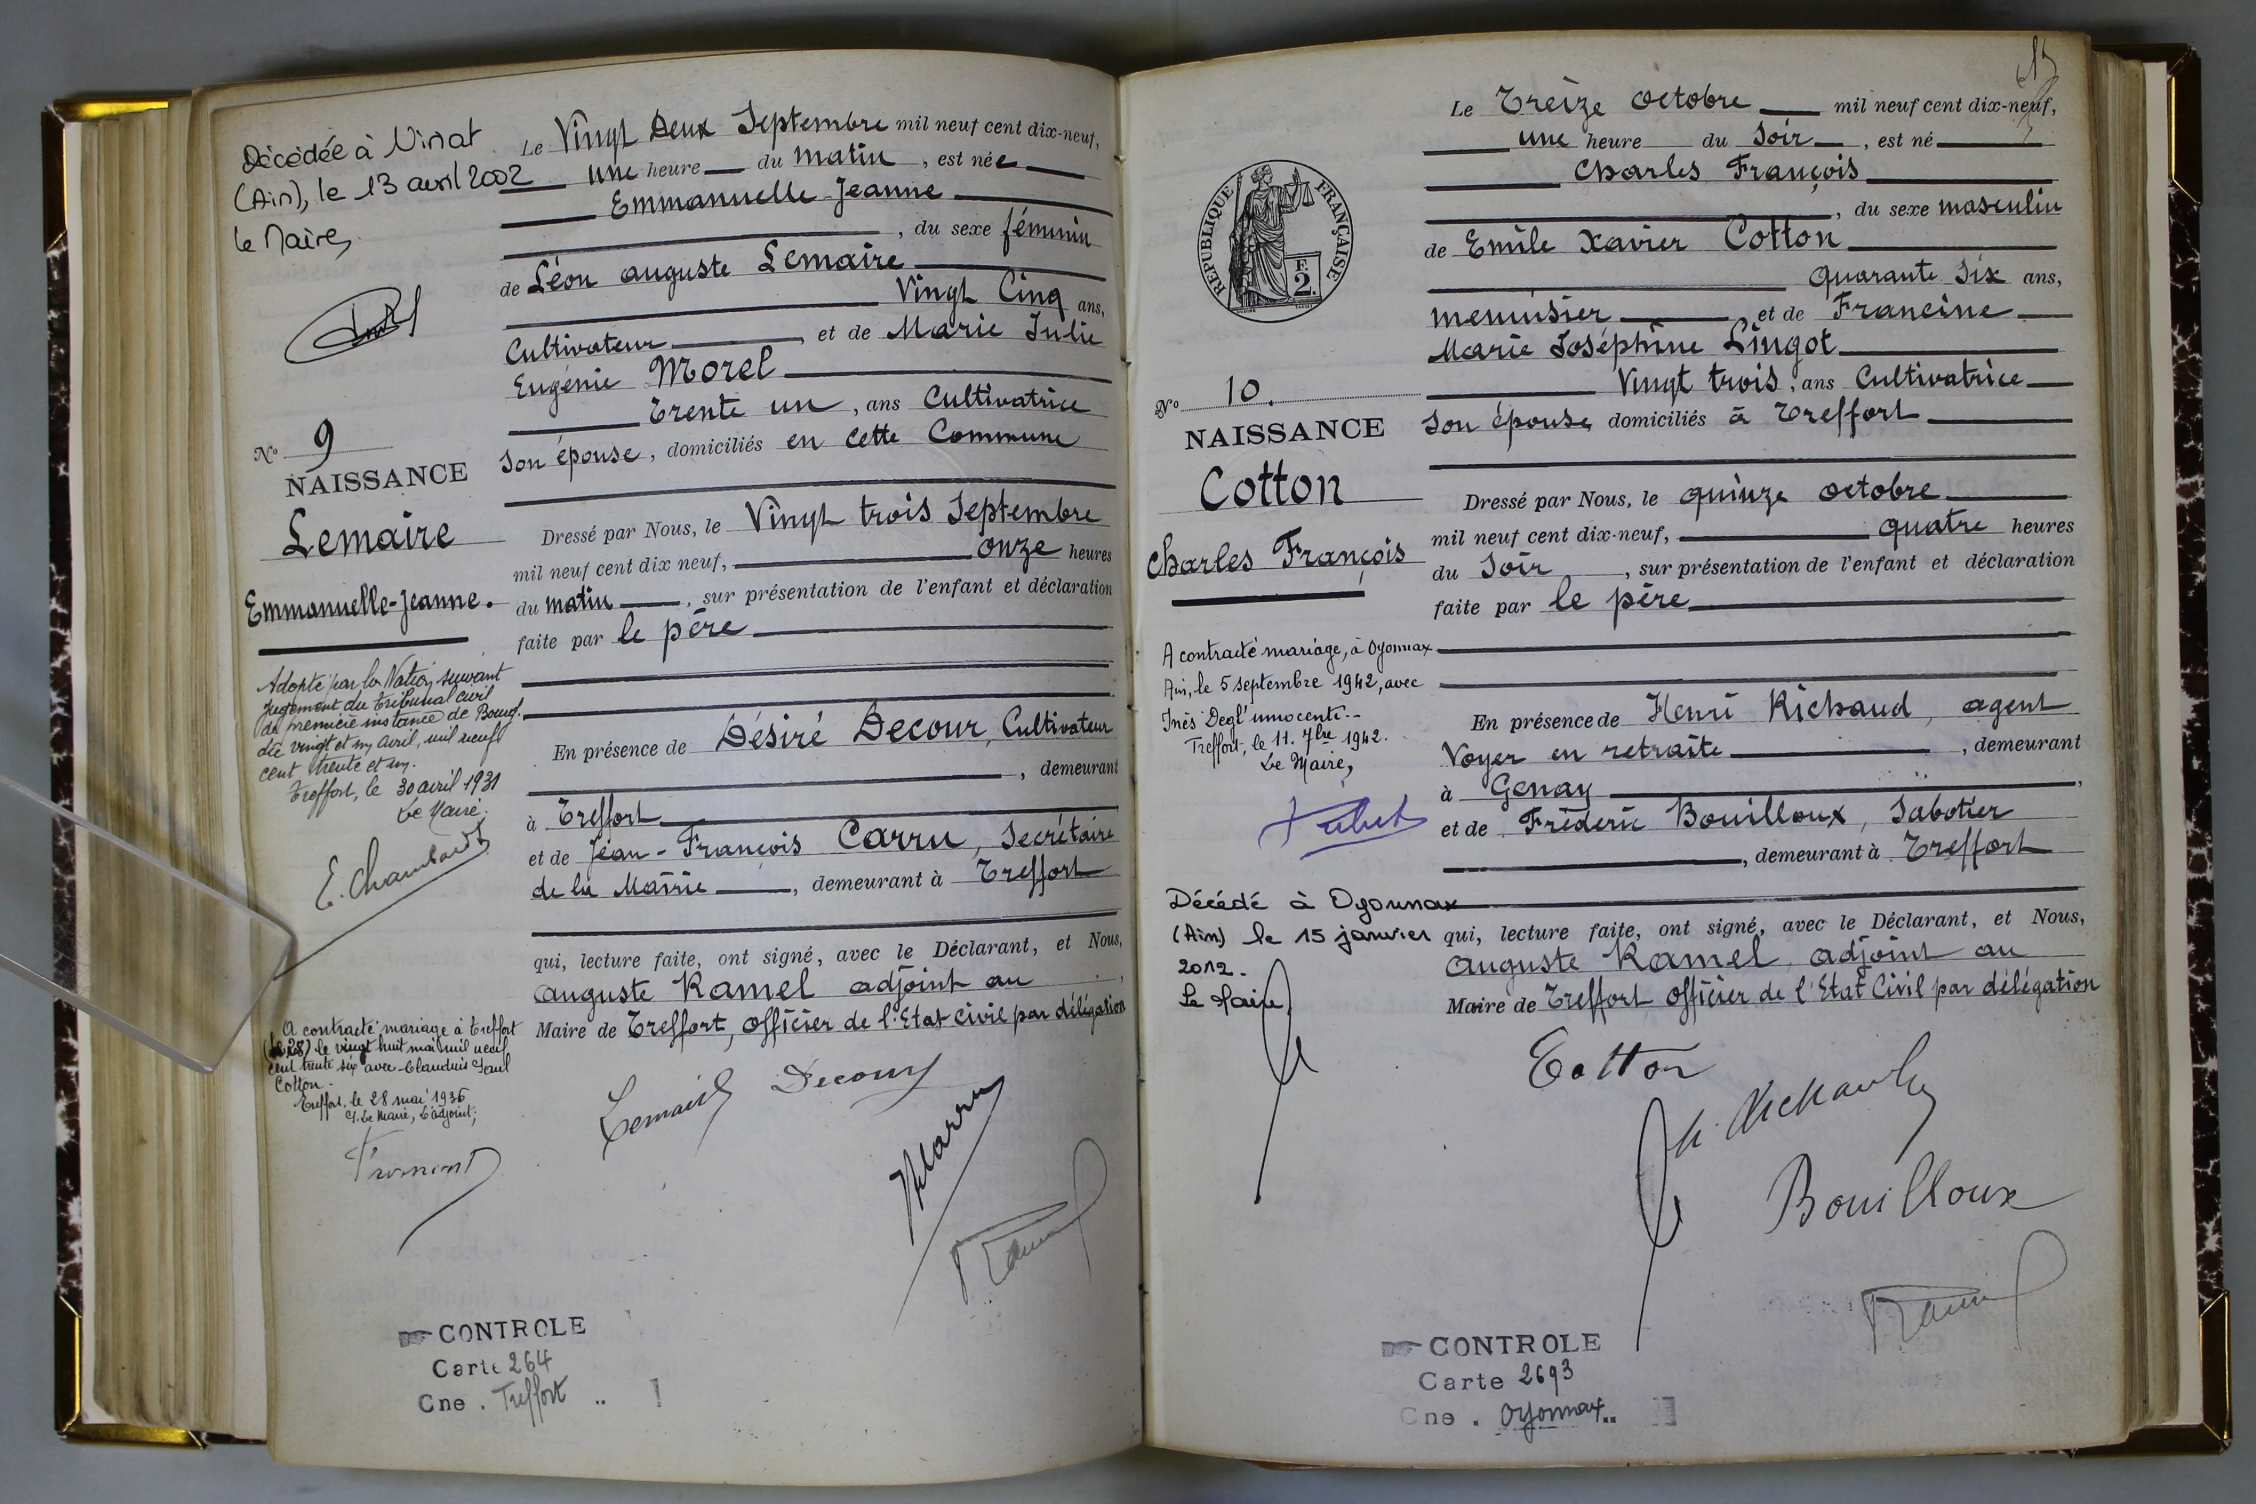 Décédée à Viriat
(Ain), le 13 avril 2002
le Maire,
N° 9
NAISSANCE
Lemaire
Emmanuelle-Jeanne.
Adopté par la Nation suivant
jugement du tribunal civil
de première instance de Bourg.
du vingt et un avril, mil neuf
cent trente et un.
Treffort, le 30 avril 1931
Le Maire.
E. Chambard
A contracté mariage à Treffort
le vingt huit mai mil neuf
cent trente six avec Claudius
Cotton.
Treffort, le 28 mai 1936
Le Maire, L'adjoint,
Le Vingt Deux Septembre mil neuf cent dix-neuf,
une heure du matin, est née
Emmanuelle-Jeanne
, du sexe féminin
de Léon auguste Lemaire
Vingt Cinq ans,
Cultivateur, et de Marie Julie
Eugénie Morel
Trente un, ans Cultivatrice
son épouse, domiciliés en cette Commune
Dressé par Nous, le Vingt trois Septembre
mil neuf cent dix neuf, onze heures
du matin, sur présentation de l'enfant et déclaration
faite par le père
En présence de Désiré Decour, Cultivateur
, demeurant
à Treffort
et de Jean-François Carru, Secrétaire
de la Mairie, demeurant à Treffort
qui, lecture faite, ont signé, avec le Déclarant, et Nous,
auguste Ramel adjoint au
Maire de Treffort, officier de l'Etat civil par délégation
Lemaire Decour
Carru
Ramel
CONTROLE
Carte 264
Cne. Treffort
RÉPUBLIQUE FRANÇAISE
F.
2.
N° 10.
NAISSANCE
Cotton
Charles François
A contracté mariage, à Oyonnax
Ain, le 5 septembre 1942, avec
Inès Degl'innocenti.-
Treffort, le 11. 7bre 1942.
Le Maire,
Décédé à Oyonnax
(Ain) le 15 janvier
2012.
Le Maire,
Le Treize octobre mil neuf cent dix-neuf,
une heure du Soir, est né
Charles François
, du sexe masculin
de Emile Xavier Cotton
quarante Six ans,
menuisier et de Francine
Marie Joséphine Lingot
Vingt trois, ans Cultivatrice
son épouse, domiciliés à Treffort
Dressé par Nous, le quinze octobre
mil neuf cent dix-neuf, quatre heures
du Soir, sur présentation de l'enfant et déclaration
faite par le père
En présence de Henri Richaud, agent
Voyer en retraite, demeurant
à Genay,
et de Fréderic Bouilloux, Sabotier
, demeurant à Treffort
qui, lecture faite, ont signé, avec le Déclarant, et Nous,
auguste Ramel, adjoint au
Maire de Treffort officier de l'Etat Civil par délégation
Cotton
h. Richaud
Bouilloux
Ramel
CONTROLE
Carte 2693
Cne. Oyonnax..